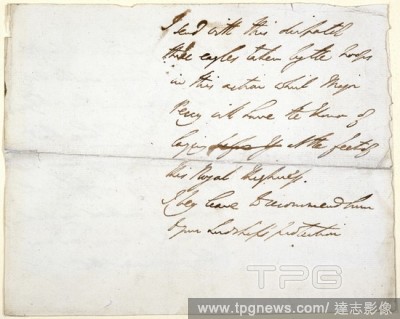 I send with this dispatch
three eagles taken by the troops
in this action which Major
Percy will have the honor of
laying before you at the feet of
his Royal Highness.
I beg leave to recommend him
to your Lordship's protection
TPG
www.tpgnews.com/達志影像